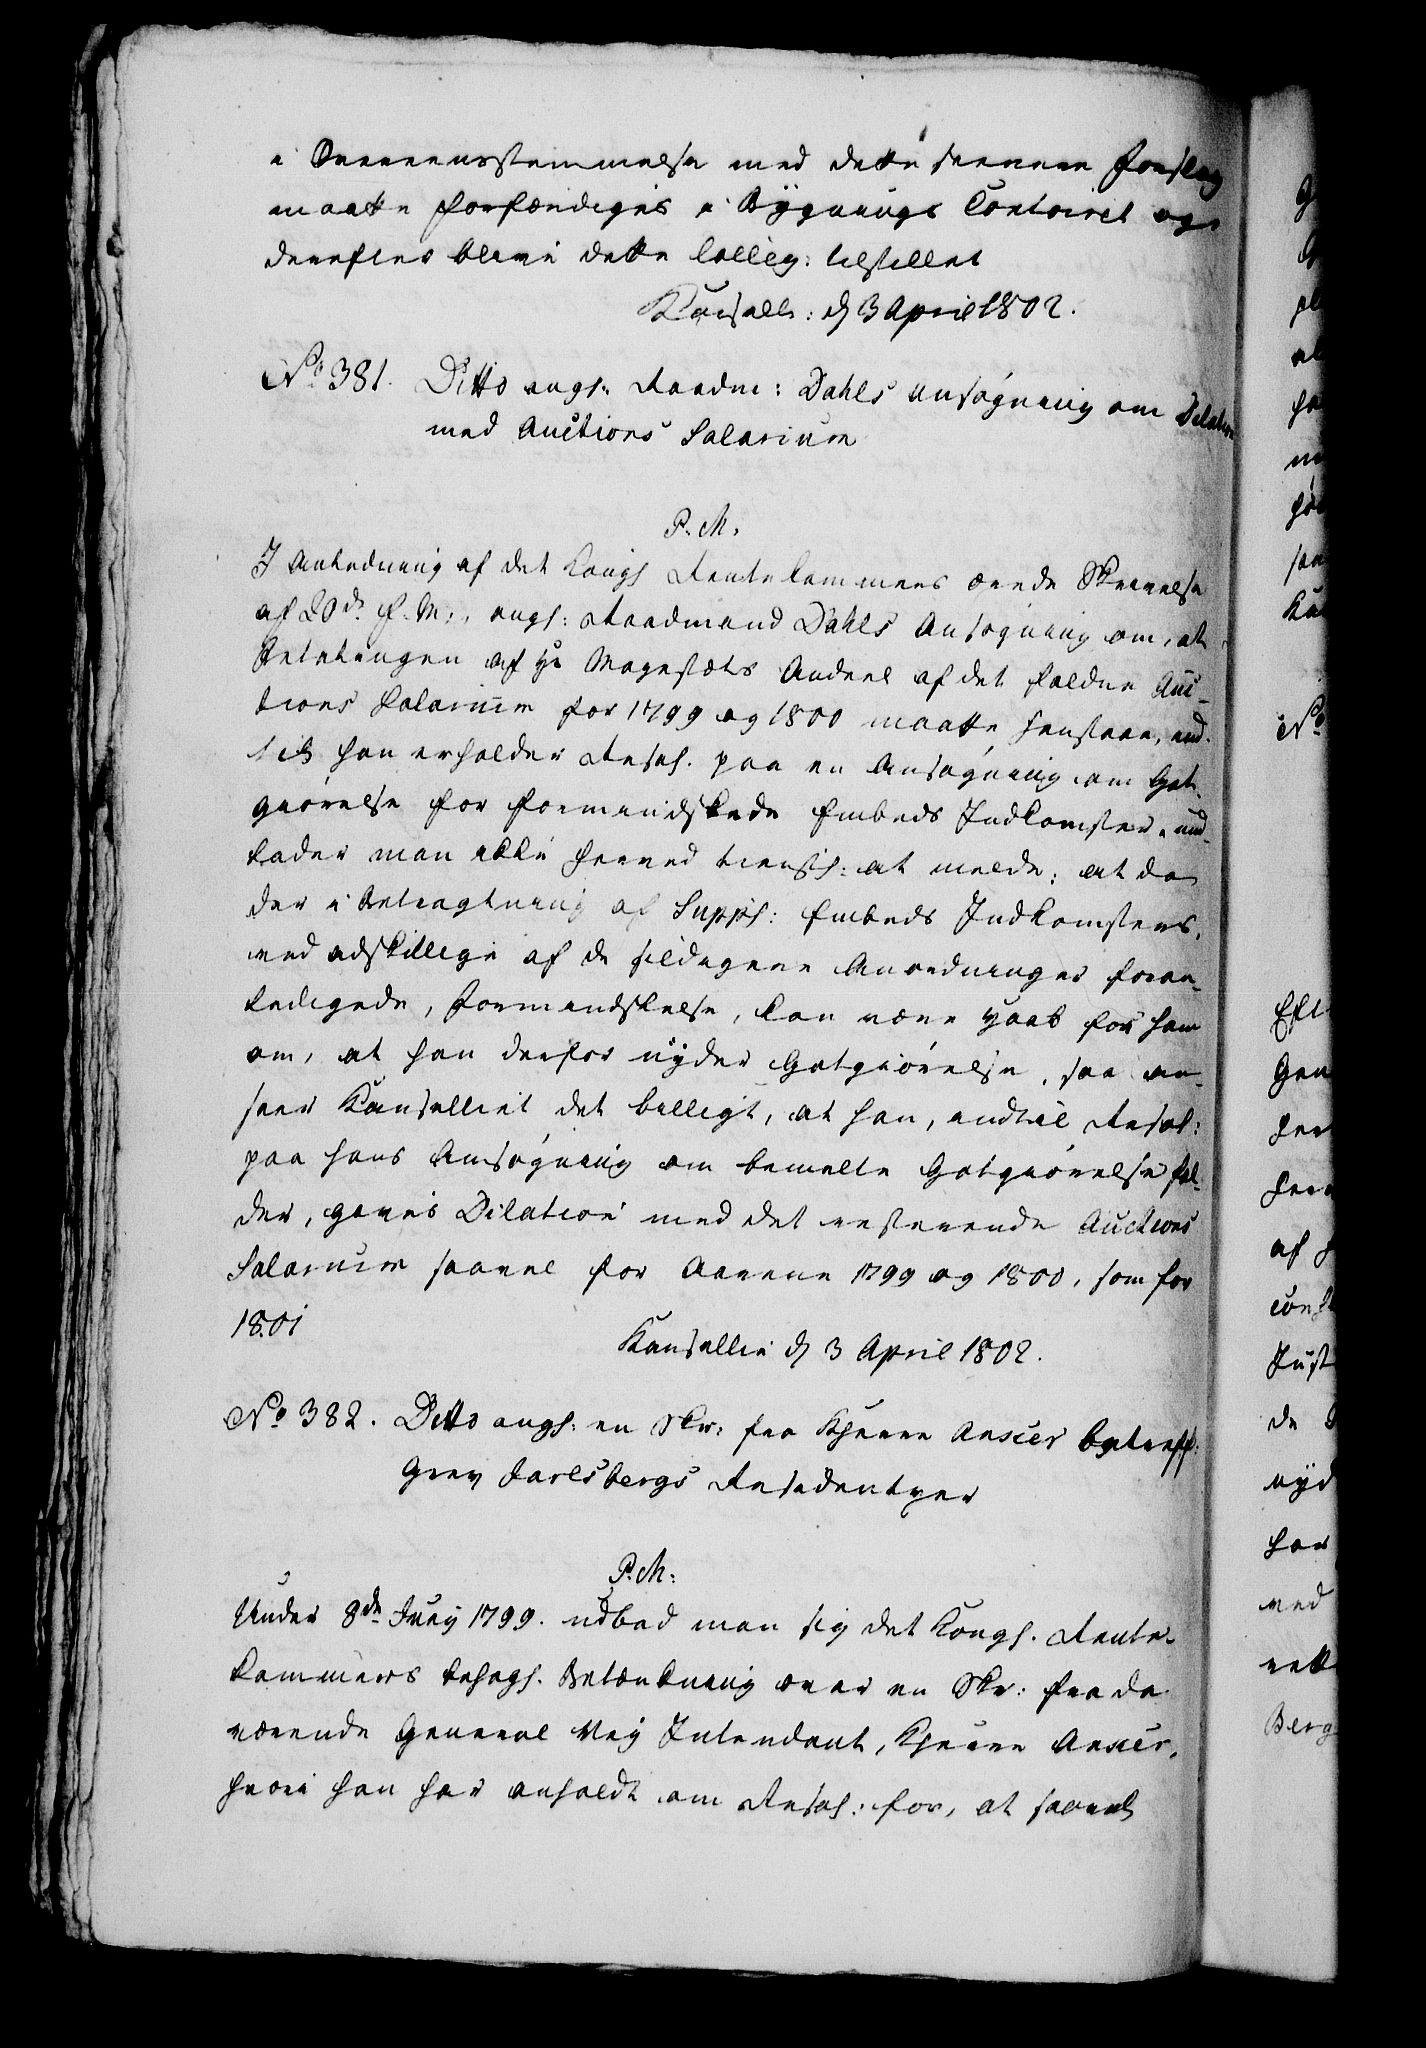 i Overeensstemmelse med dette seenere Forslag
maatte forfærdiges i Bygnings Contoiret og
derefter blive dette Colleg: tilstillet
Cancellie: d 3 April 1802.
No 381. Ditto angh. Raadm: Dahls Ansøgning om Dilation
med Auctions Salarium
P. M.
I Anledning af det Kongl Rentekammers ærede Skrivelse
af 20de f. M:, angh: Raadmand Dahls Ansøgning om, at
Betalingen af Hs Majestæts Andeel af det faldne Auc-
tions Salarium for 1799 og 1800 maatte henstaae, ind-
til han erholder Resol. paa en Ansøgning om Godt-
giørelse for formindskede Embeds Indkomster, und-
lader man ikke herved tienstl: at melde: at da
der i Betragtning af Suppl: Embeds Indkomsters,
ved adskillige af de sildigere Anordninger foran-
ledigede, Formindskelse, kan være Haab for ham
om, at han derfor nyder Godtgiørelse, saa an-
seer Kancelliet det billigt, at han, indtil Resol:
paa hans Ansøgning om bemelte Godtgiørelse fal-
der, gives Dilation med det resterende Auctions
Salarium saavel for Aarene 1799 og 1800, som for
1801
Cancellie d 3 April 1802.
No 382. Ditto angh: en Skr: fra Hr Anker betreff:
Grev Jarlsbergs Residentzer
P. M:
Under 8de Juny 1799. udbad man sig det Kongl. Rente-
kammers behagl. Betænkning over en Skr: fra da
værende General Vej Intendant, Anker,
hvori han har anholdt om Resol: for, at saavel